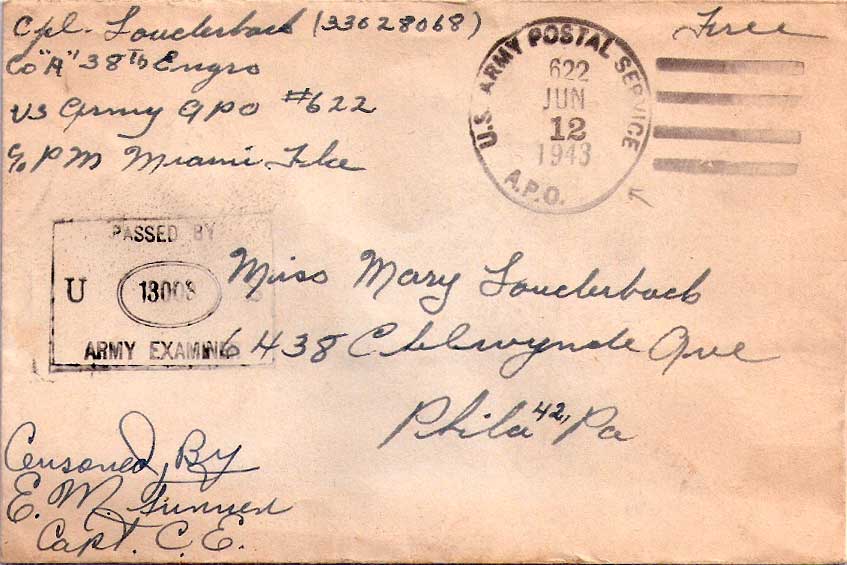 Cpl. Louderback (33028068)
Co "A" 38th Engrs
US Army APO #622
c/o PM Miami Fla
Free
U.S. ARMY POSTAL SERVICE
622
JUN
12
1943
A.P.O.
PASSED BY
U 13008 S
ARMY EXAMINER
Miss Mary Louderback
6438 Ave
Phila 42, Pa
Censored By
E. M.
Capt. C.E.